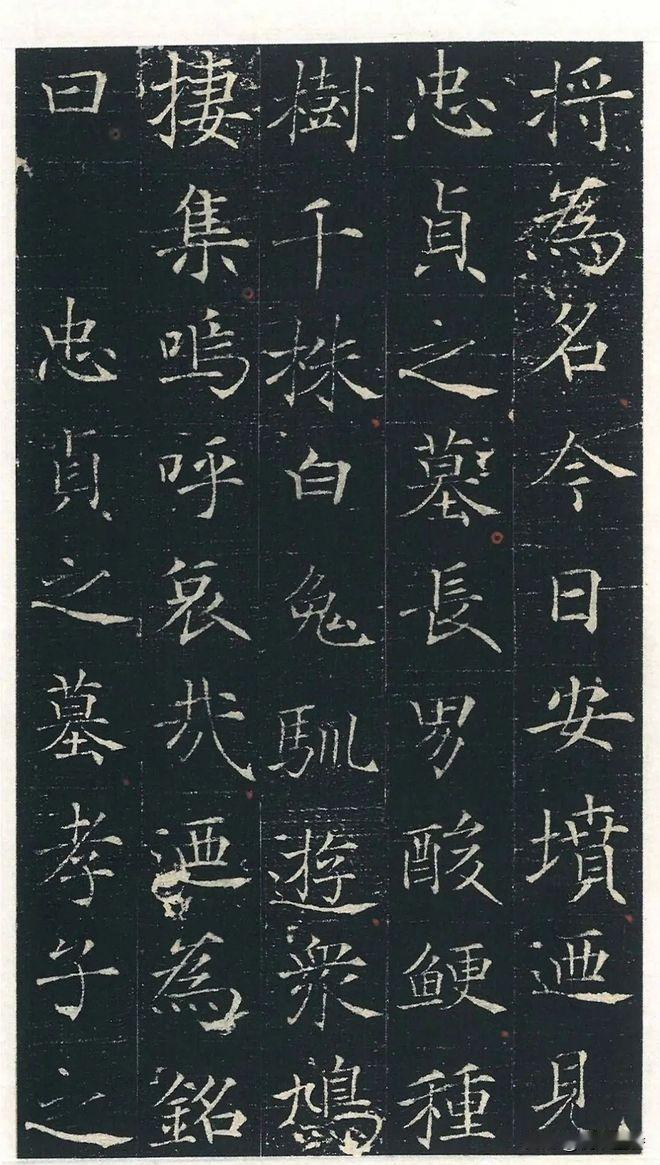 将為名今日安墳迺見
忠貞之墓長男酸鯁種
樹千株白兔馴遊衆鳩
捿集嗚呼哀哉迺為銘
曰 忠貞之墓孝子之